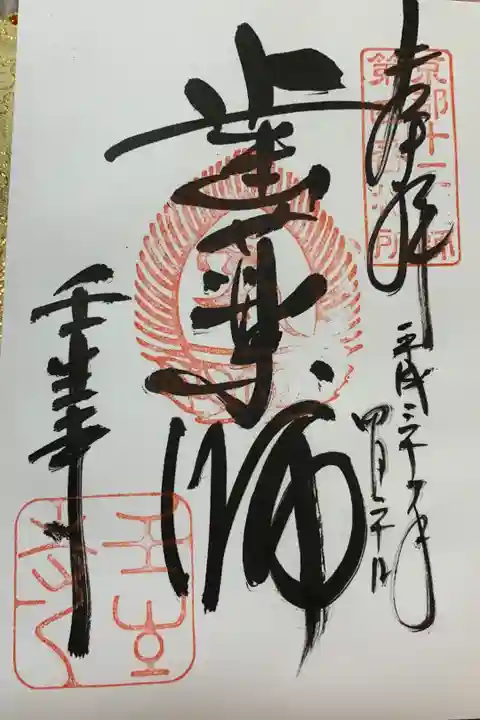 奉拝
京都十二薬師
第四番札所
平成三十一年
四月二十日
歯薬師
壬生寺